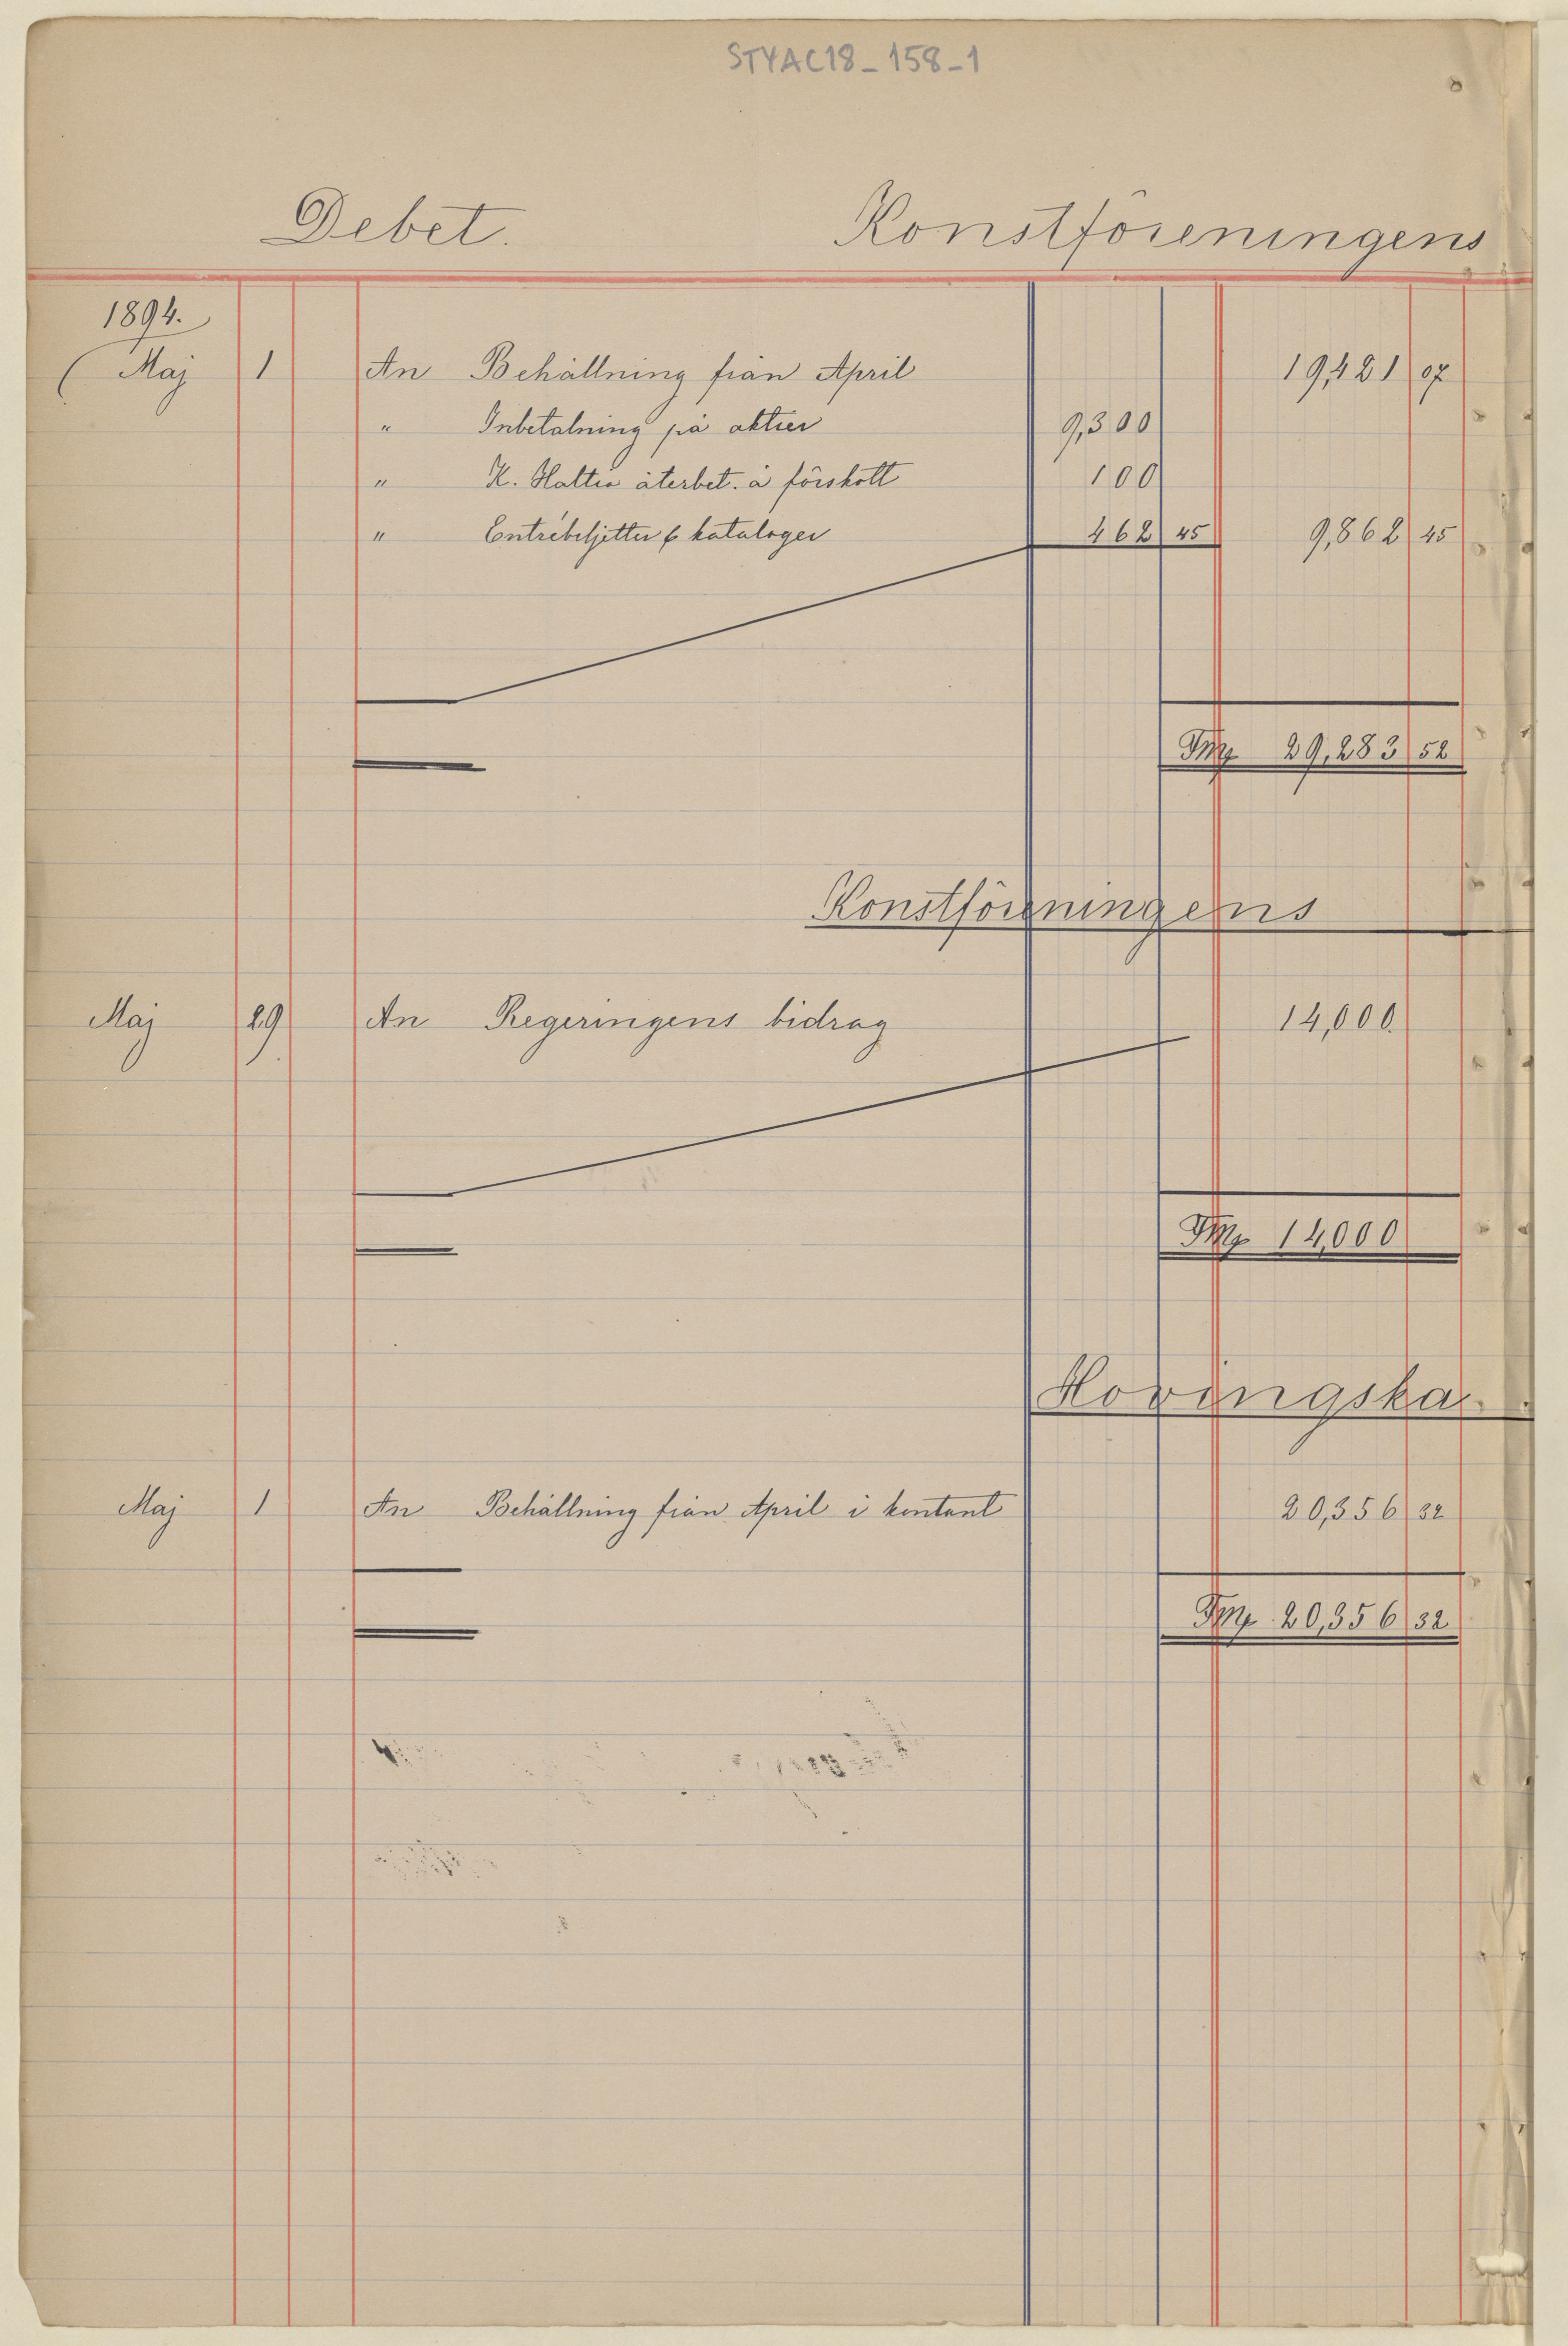 STYAC18_158_1
Debet. Konstföreningens
1894.
Maj 1 An Behållning från April 19,421 07
" Inbetalning på aktier 9,300
" K. Haltia återbet. å förskott 100
" Entrébiljetter & kataloger 462 45 9,862 45
Fmk 29,283 52
Konstföreningens
Maj 29 An Regeringens bidrag 14,000.
Fmk 14,000
Hovingska
Maj 1 An Behållning från April i kontant 20,356 32
Fmk 20,356 32